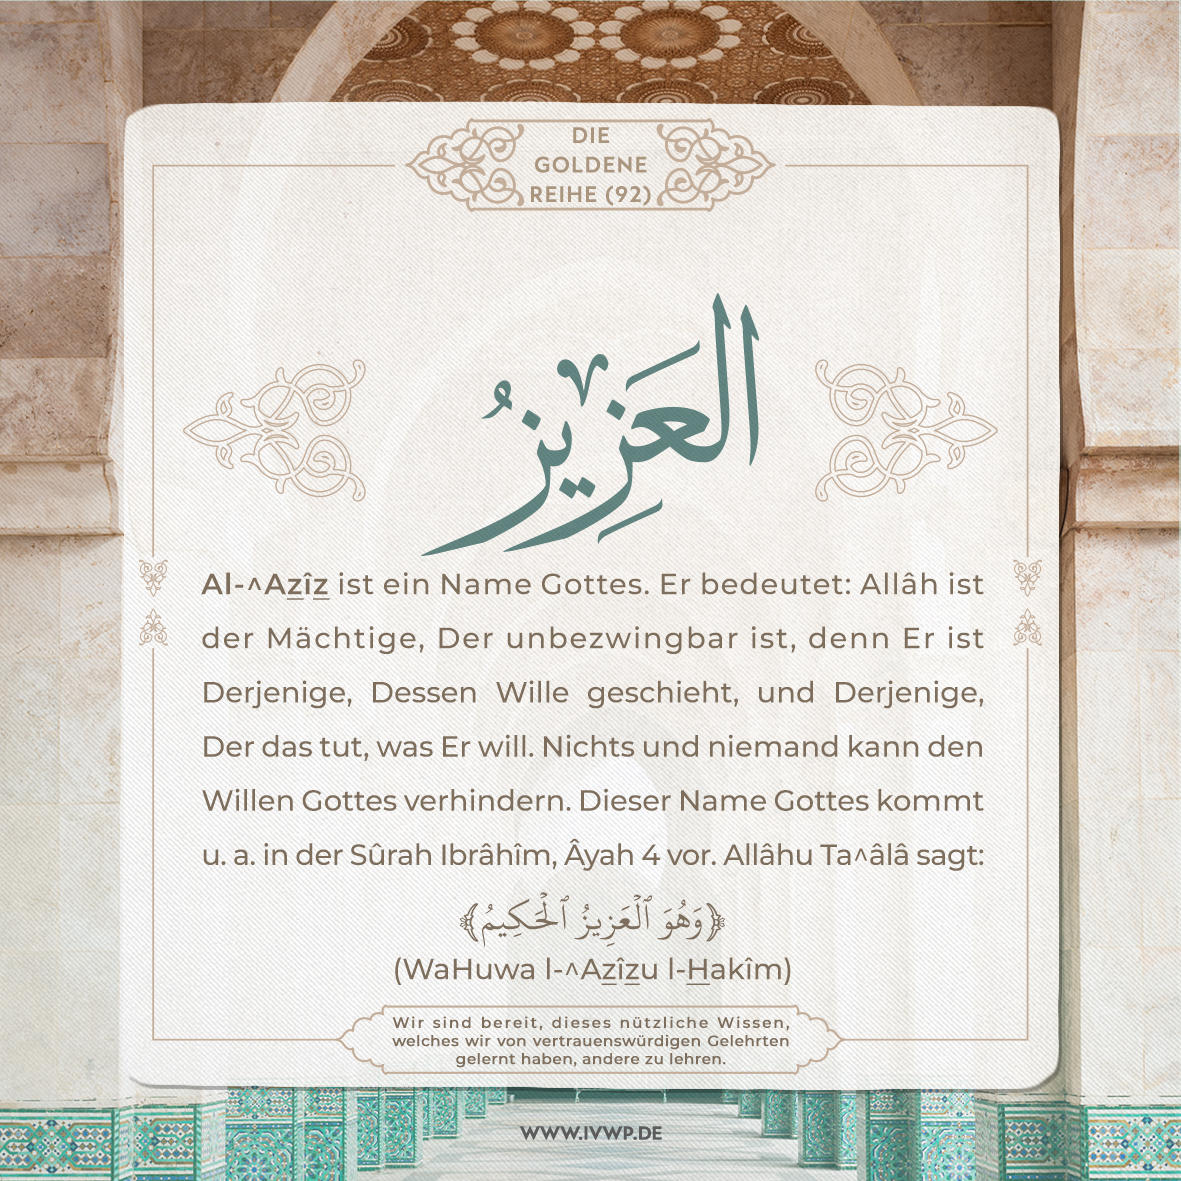 DIE
GOLDENE
REIHE (92)
العَزِيزُ
Al-^Azîz ist ein Name Gottes. Er bedeutet: Allâh ist
der Mächtige, Der unbezwingbar ist, denn Er ist
Derjenige, Dessen Wille geschieht, und Derjenige,
Der das tut, was Er will. Nichts und niemand kann den
Willen Gottes verhindern. Dieser Name Gottes kommt
u. a. in der Sûrah Ibrâhîm, Âyah 4 vor. Allâhu Ta^âlâ sagt:
﴿وَهُوَ ٱلْعَزِيزُ ٱلْحَكِيمُ﴾
(WaHuwa l-^Azîzu l-Hakîm)
Wir sind bereit, dieses nützliche Wissen,
welches wir von vertrauenswürdigen Gelehrten
gelernt haben, andere zu lehren.
WWW.IVWP.DE